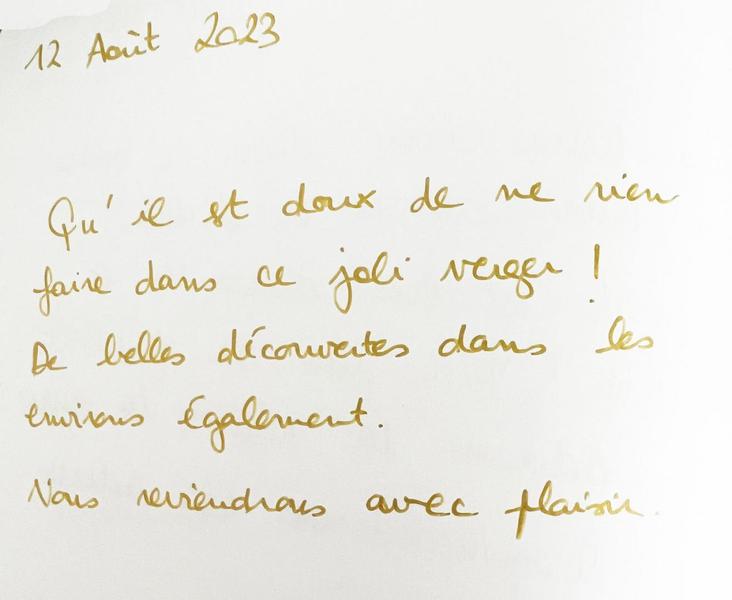 12 Août 2023
Qu'il est doux de ne rien
faire dans ce joli verger !
De belles découvertes dans les
environs également.
Nous reviendrons avec plaisir.